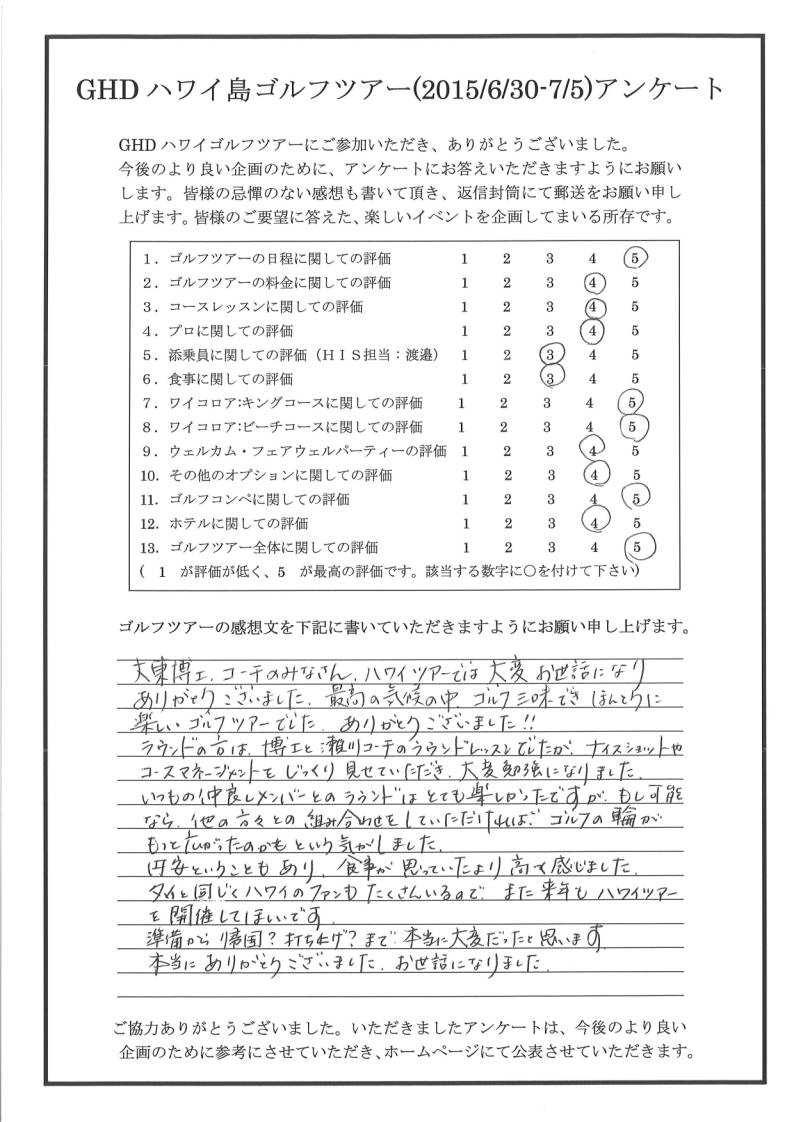 GHD ハワイ島ゴルフツアー(2015/6/30-7/5)アンケート
GHD ハワイゴルフツアーにご参加いただき、ありがとうございました。
今後のより良い企画のために、アンケートにお答えいただきますようにお願い
します。皆様の忌憚のない感想も書いて頂き、返信封筒にて郵送をお願い申し
上げます。皆様のご要望に答えた、楽しいイベントを企画してまいる所存です。
1．ゴルフツアーの日程に関しての評価 1 2 3 4 5
2．ゴルフツアーの料金に関しての評価 1 2 3 4 5
3．コースレッスンに関しての評価 1 2 3 4 5
4．プロに関しての評価 1 2 3 4 5
5．添乗員に関しての評価（ＨＩＳ担当：渡邉） 1 2 3 4 5
6．食事に関しての評価 1 2 3 4 5
7．ワイコロア:キングコースに関しての評価 1 2 3 4 5
8．ワイコロア:ビーチコースに関しての評価 1 2 3 4 5
9．ウェルカム・フェアウェルパーティーの評価 1 2 3 4 5
10．その他のオプションに関しての評価 1 2 3 4 5
11．ゴルフコンペに関しての評価 1 2 3 4 5
12．ホテルに関しての評価 1 2 3 4 5
13．ゴルフツアー全体に関しての評価 1 2 3 4 5
(　1　が評価が低く、5　が最高の評価です。該当する数字に〇を付けて下さい)
ゴルフツアーの感想文を下記に書いていただきますようにお願い申し上げます。
大東博士、コーチのみなさん、ハワイツアーでは 大変 お世話になり
ありがとうございました。最高の気候の中、ゴルフ三昧でき ほんとうに
楽しい ゴルフツアーでした。ありがとうございました!!
ラウンドの方は、博士と瀬川コーチのラウンドレッスンでしたが、ナイスショットや
コースマネージメントを じっくり 見せていただき、大変勉強になりました。
いつもの仲良しメンバーとのラウンドは とても楽しかったですが、もし可能
なら、他の方々との 組み合わせをしていただければ、ゴルフの輪が
もっと広がったのかも という気がしました。
円安ということもあり、食事が思っていたより 高く感じました。
タイと同じくハワイのファンも たくさんいるので、また来年も ハワイツアー
を 開催してほしいです。
準備から 帰国？打ち上げ？まで 本当に大変だったと思います。
本当に ありがとうございました。お世話になりました。
ご協力ありがとうございました。いただきましたアンケートは、今後のより良い
企画のために参考にさせていただき、ホームページにて公表させていただきます。